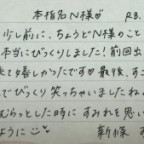 本指名N様が R3.
少し前に、ちょうどN様のこと
本当にびっくりしました！前回出
来て嬉しかったですが最後、すこ
でびっくり 笑っちゃいましたね
むらっとした時に すみれを思い
ように
新様